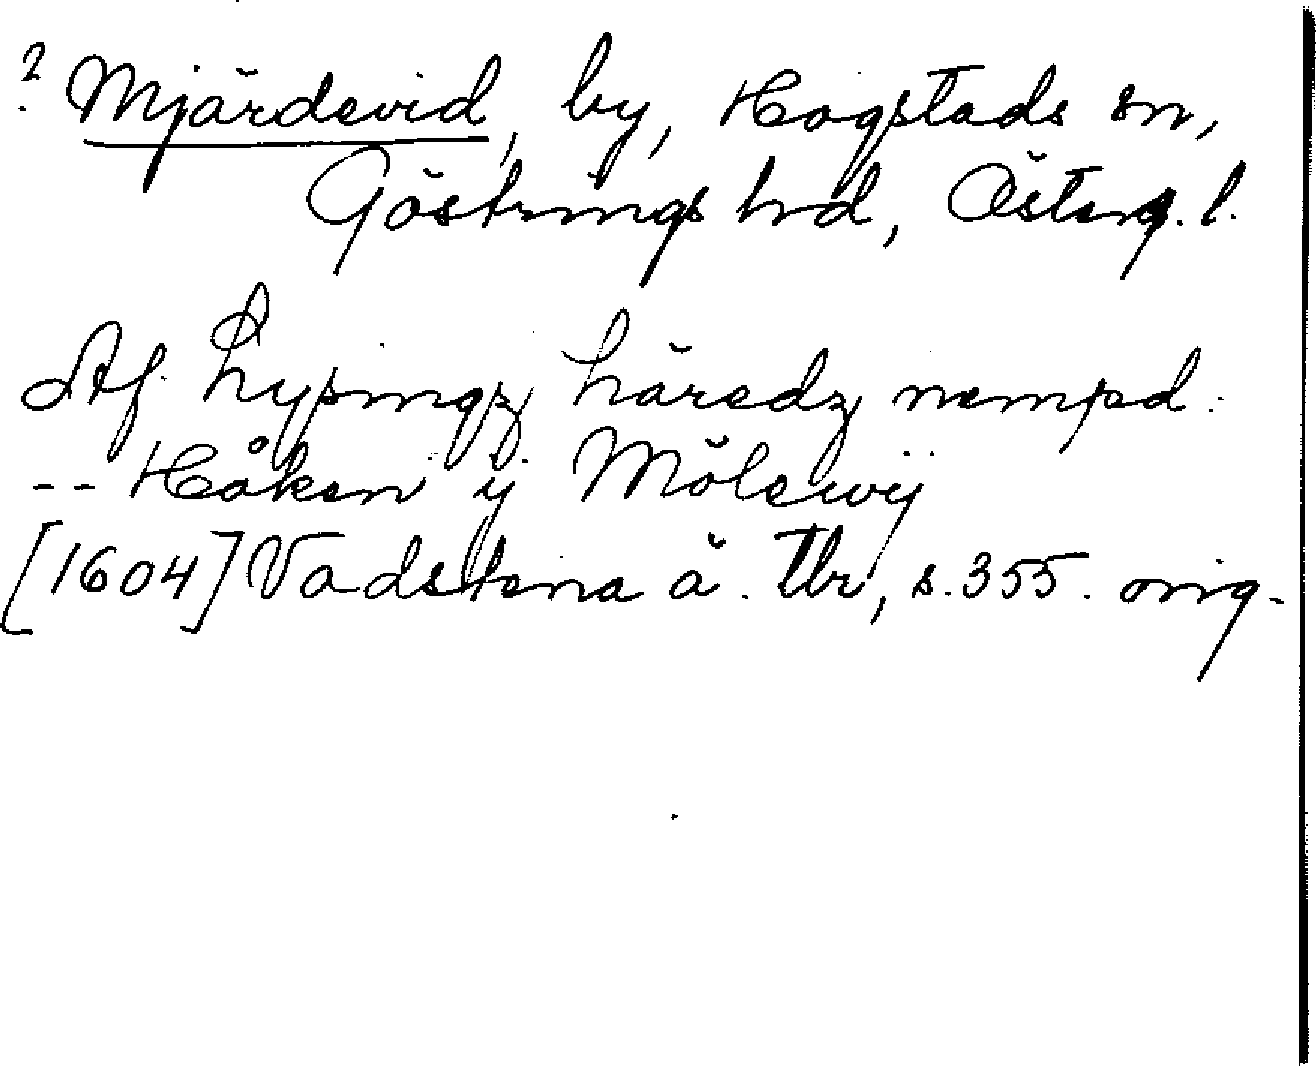 ? Mjärdevid, by, Hogstads sn,
Göstrings hrd, Österg. l.
Af Lypingz häredz nempd.
-- Håken ÿ Mölewÿ
[1604] Vadstena ä. Tbr, s. 355. orig.